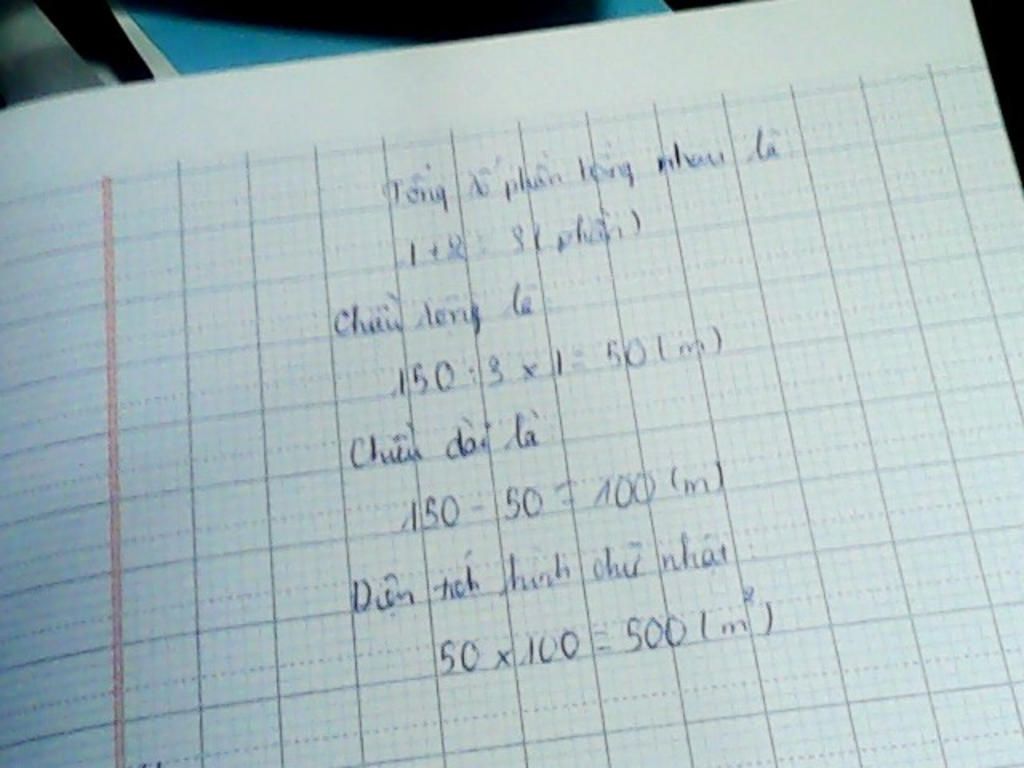 Tổng số phần bằng nhau là
1 + 2 = 3 (phần)
Chiều rộng là
150 : 3 x 1 = 50 (m)
Chiều dài là
150 - 50 = 100 (m)
Diện tích hình chữ nhật
50 x 100 = 500 (m²)